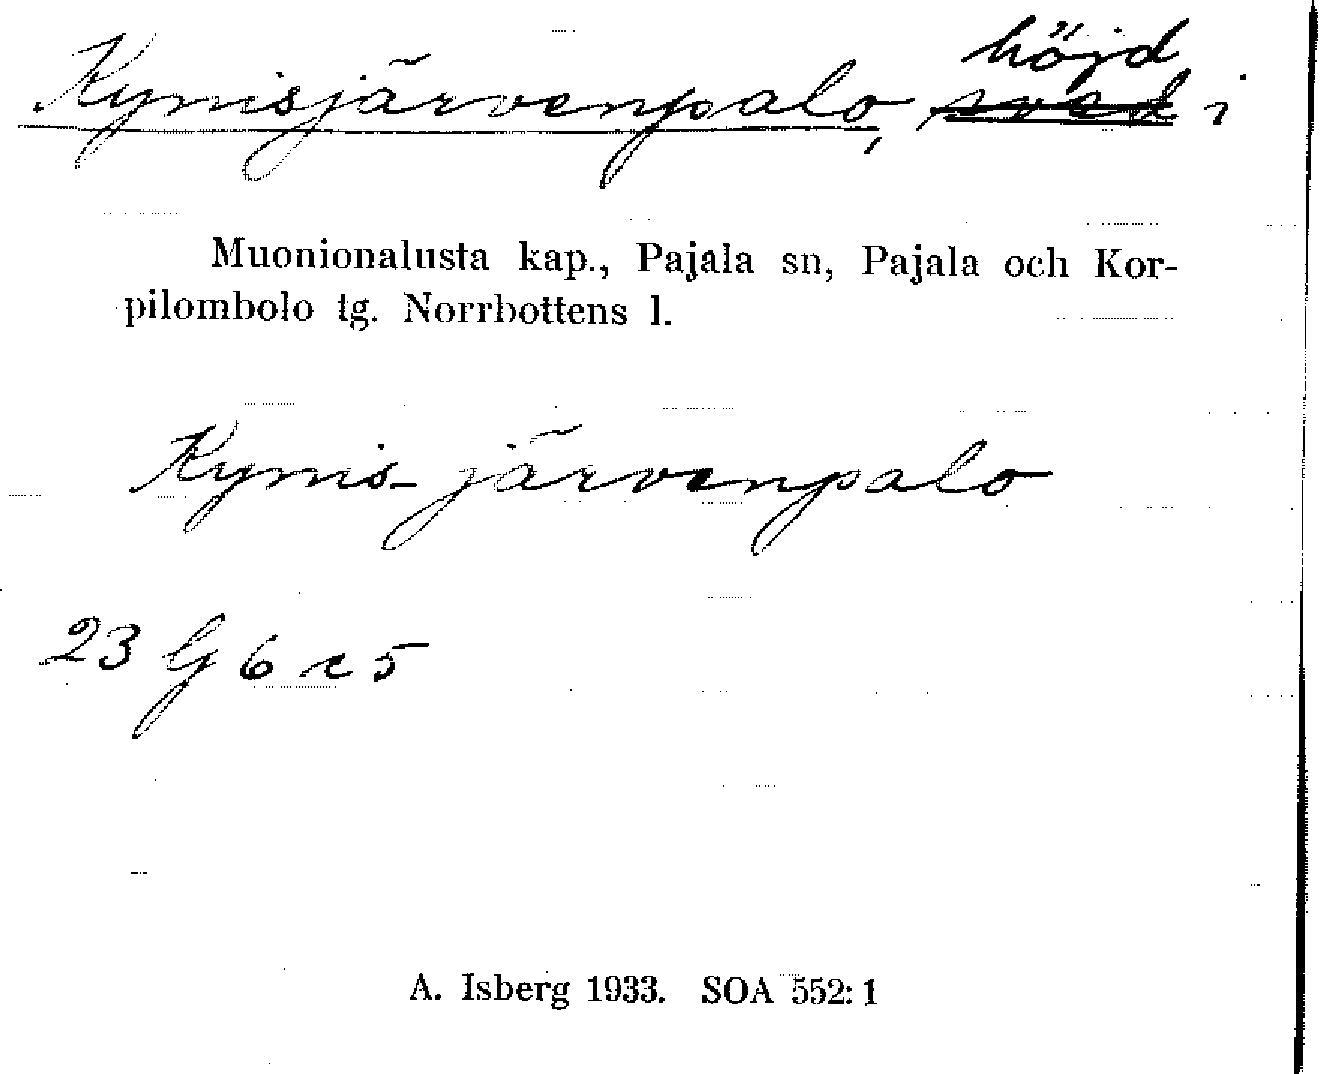 höjd
Kynsisjärvenpalo, sved i
Muonionalusta kap., Pajala sn, Pajala och Kor-
pilombolo tg. Norrbottens l.
Kynsis-järvenpalo
23 G 6 c 5
A. Isberg 1933. SOA 552:1